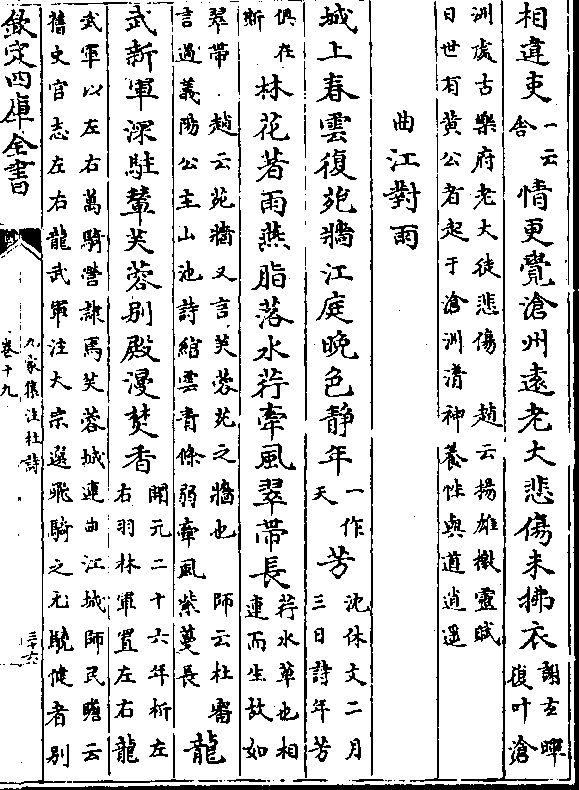 相違吏一云舍情更覺滄州遠老大悲傷未拂衣謝玄暉復叶滄
洲處古樂府老大徒悲傷 趙云揚雄檄靈賦
日世有黃公者起于滄洲清神養性與道逍遥
曲江對雨
城上春雲復苑牆江庭晚色靜年一作天芳沈休文二月三日詩年芳
俱在斯林花著雨燕脂落水荇牽風翠帶長荇水草也相連而生故如
翠帶 趙云苑牆又言芙蓉苑之牆也 師云杜審
言過義陽公主山池詩綰雲青條弱牽風紫蔓長龍
武新軍深駐輦芙蓉別殿漫焚香開元二十六年析左右羽林軍置左右龍
武軍以左右萬騎營隸焉芙蓉城連曲江城師民瞻云
舊史官志左右龍武軍注大宗選飛騎之尤驍健者別
欽定四庫全書
九家集注杜詩
卷十九
三十六